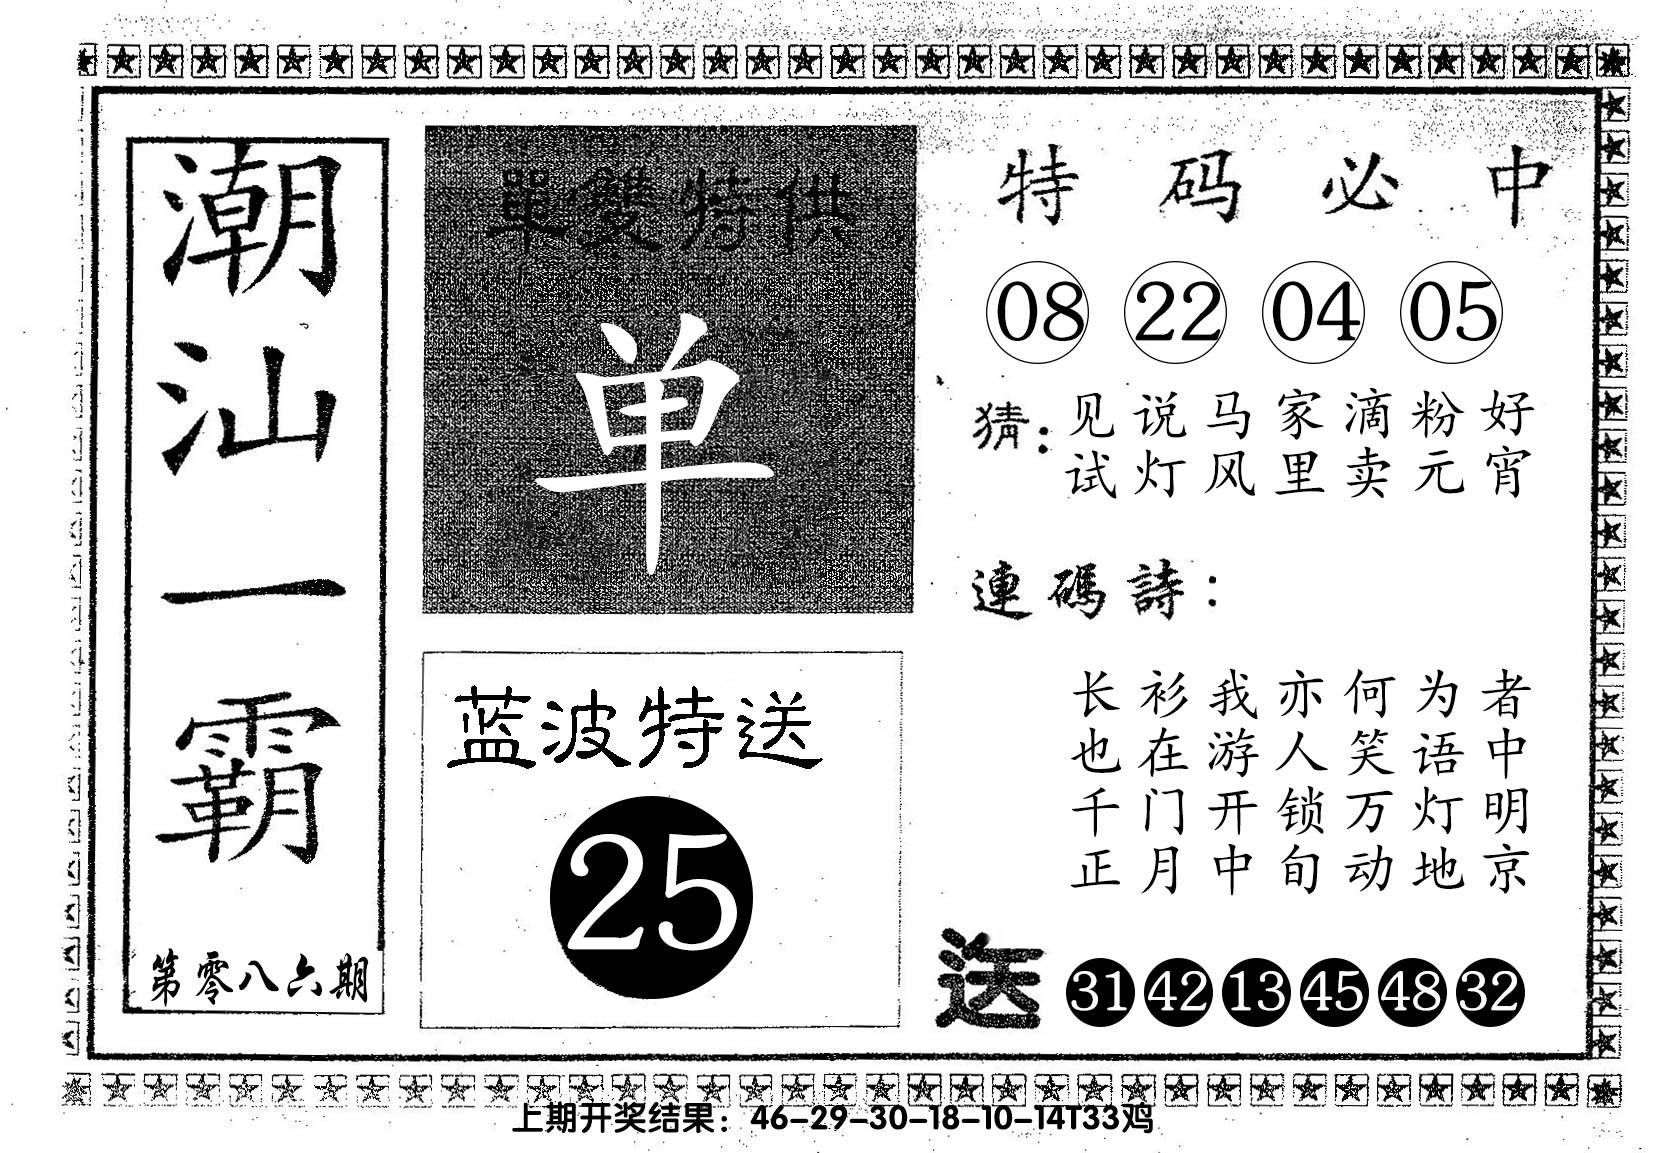 潮汕一霸
第零八六期
單雙特供
单
蓝波特送
25
特码必中
08 22 04 05
猜：见说马家滴粉好
试灯风里卖元宵
連碼詩：
长衫我亦何为者
也在游人笑语中
千门开锁万灯明
正月中旬动地京
送 31 42 13 45 48 32
上期开奖结果：46-29-30-18-10-14T33鸡